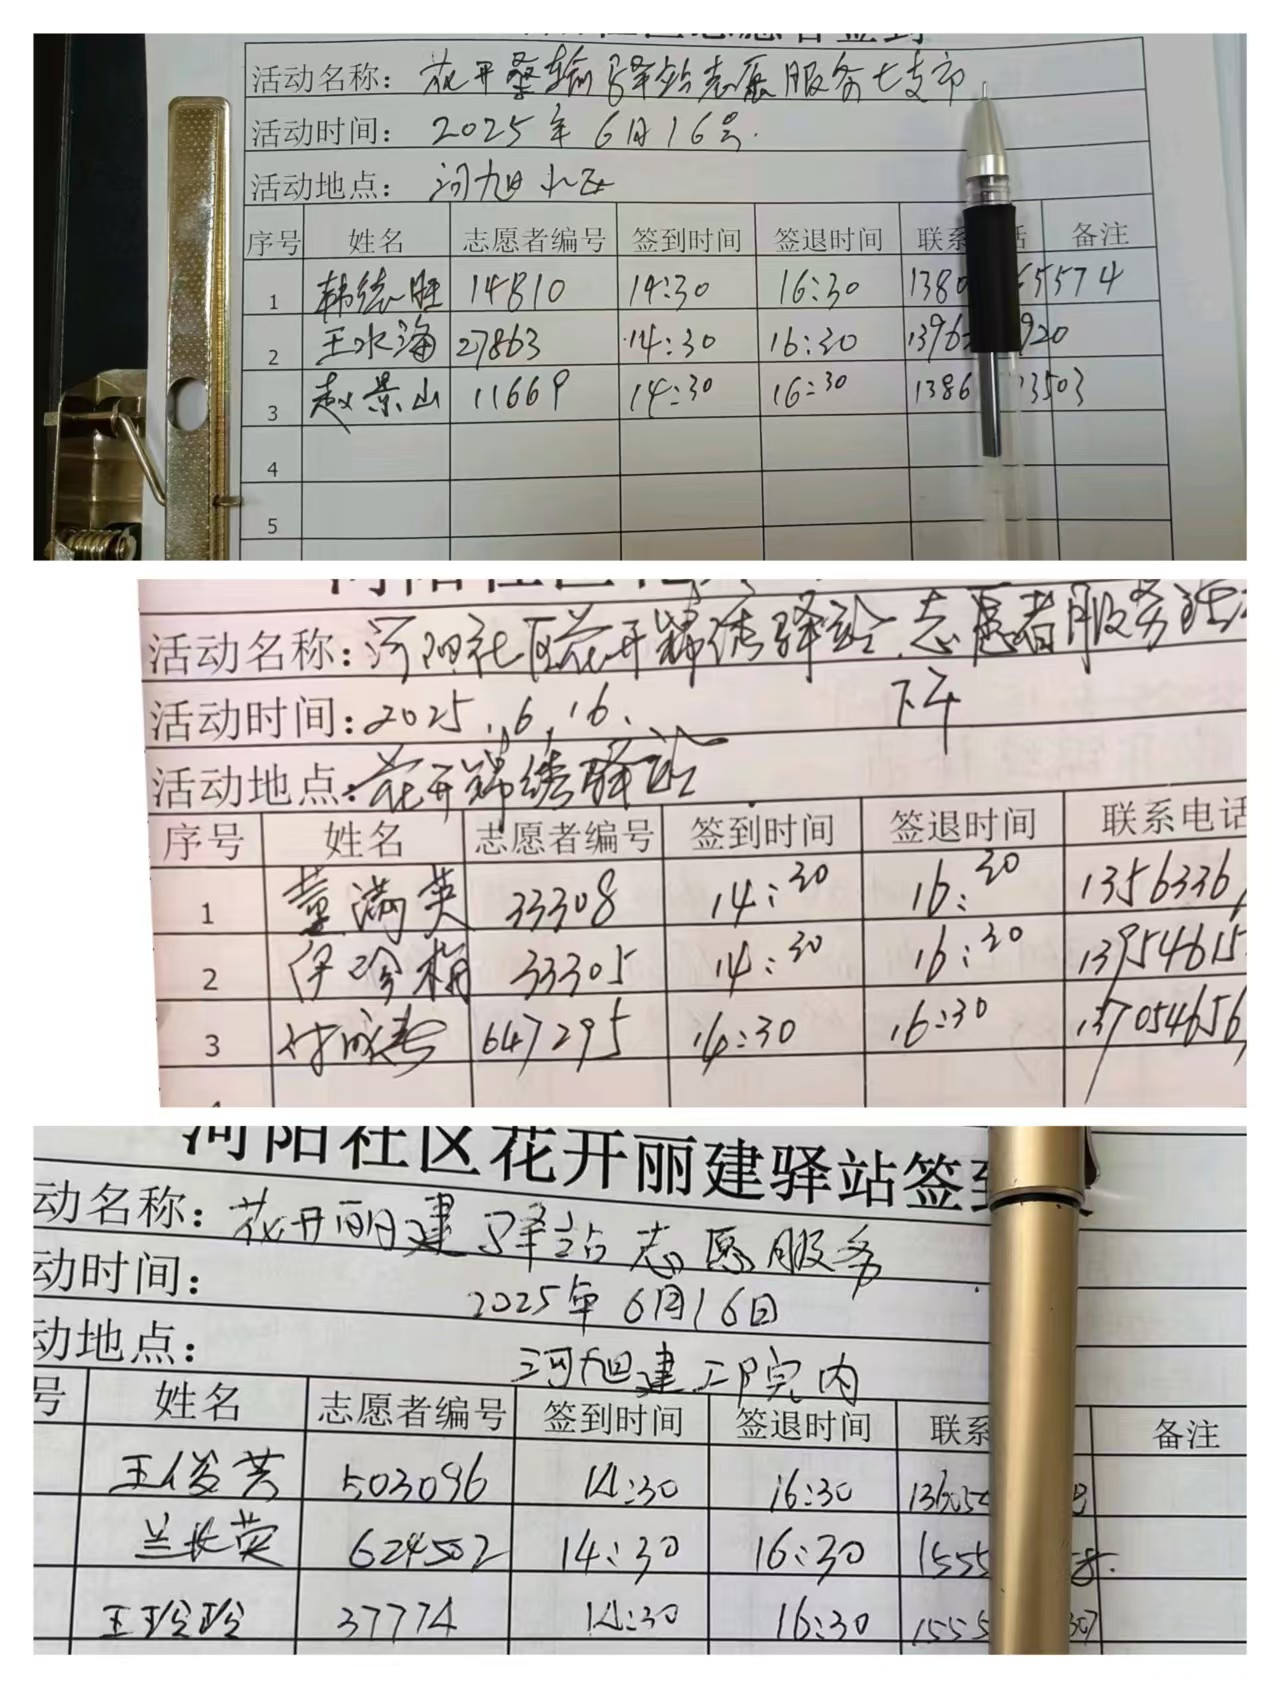 活动名称: 花开桑榆驿站志愿服务七支部
活动时间: 2025年6月16号.
活动地点: 河旭小区
序号 姓名 志愿者编号 签到时间 签退时间 联系 话 备注
1 韩德胜 14810 14:30 16:30 1380 65574
2 王水海 27863 14:30 16:30 1396 920
3 赵景山 11669 14:30 16:30 1386 3503
4
5
活动名称: 河阳社区花开锦绣驿站.志愿者服务活
活动时间: 2025.6.16. 下午
活动地点: 花开锦绣驿站
序号 姓名 志愿者编号 签到时间 签退时间 联系电话
1 董满英 33308 14:30 16:30 1356336
2 伊珍梅 33305 14:30 16:30 13954615
3 647295 14:30 16:30 137054656
河阳社区花开丽建驿站签到
动名称: 花开丽建驿站志愿服务
动时间: 2025年6月16日
动地点: 河旭建工院内
号 姓名 志愿者编号 签到时间 签退时间 联系 备注
王俊芳 503096 14:30 16:30 136054
兰长英 624502 14:30 16:30 1555 58.
王玲玲 37774 14:30 16:30 1555 307